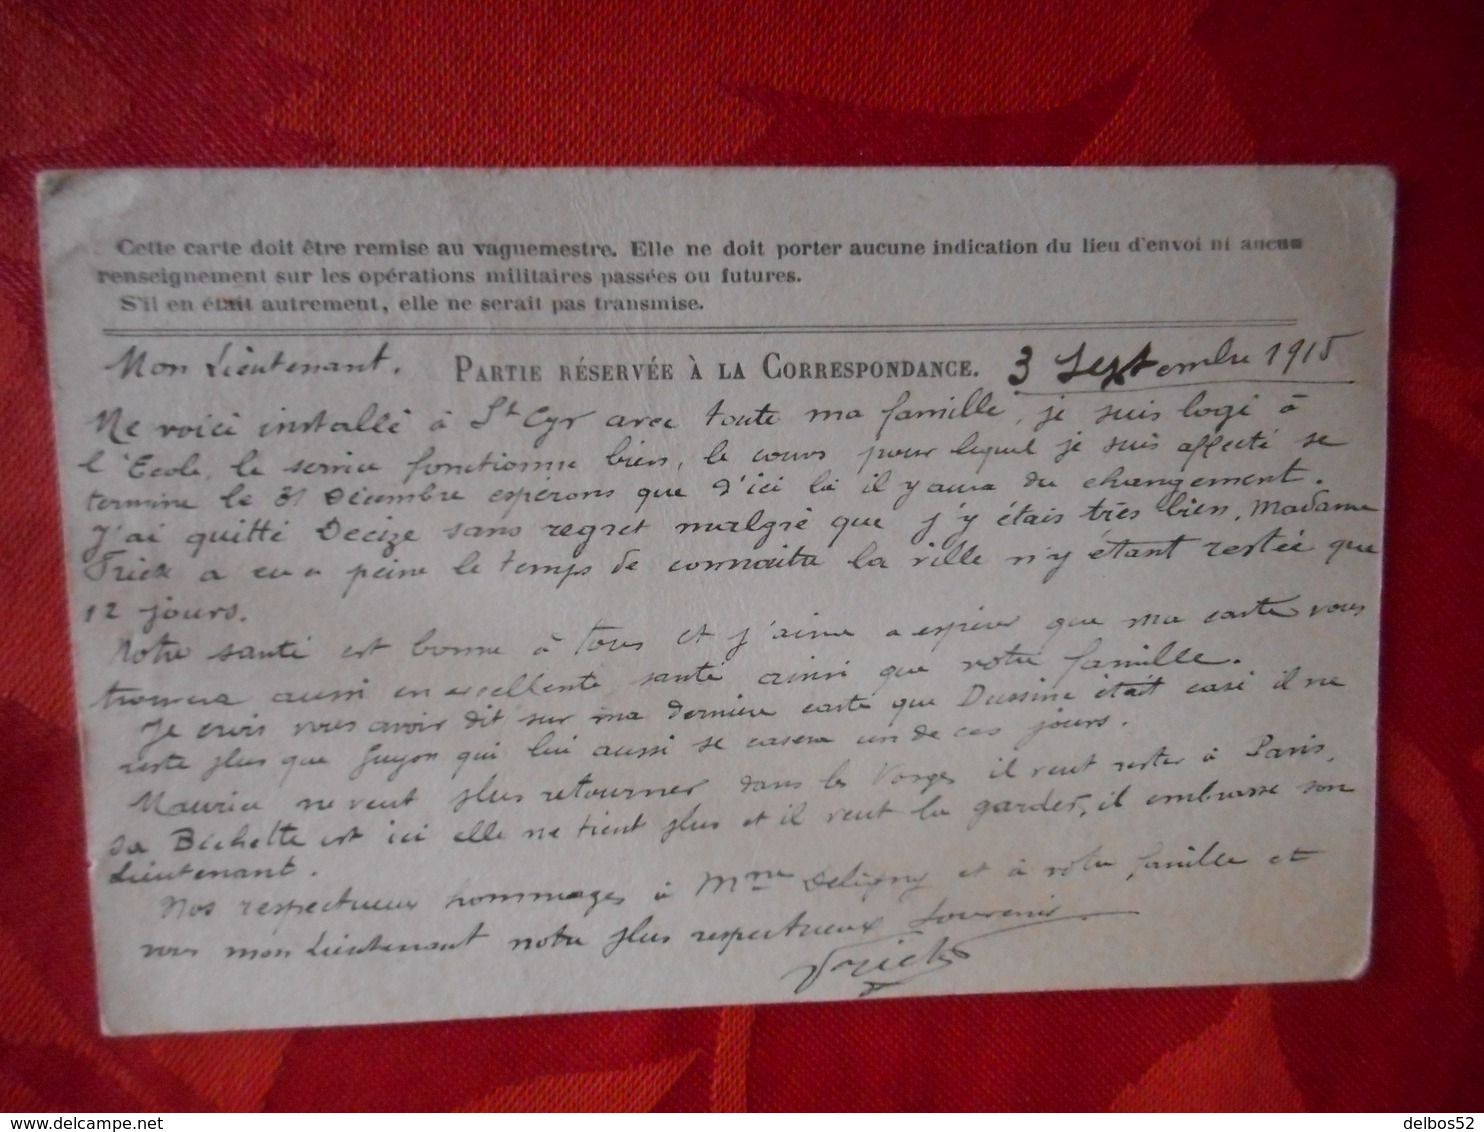 Cette carte doit être remise au vaguemestre. Elle ne doit porter aucune indication du lieu d'envoi ni aucun
renseignement sur les opérations militaires passées ou futures.
S'il en était autrement, elle ne serait pas transmise.
Mon Lieutenant. PARTIE RÉSERVÉE À LA CORRESPONDANCE. 3 Septembre 1915
Me voici installé à St Cyr avec toute ma famille, je suis logé à
l'Ecole, le service fonctionne bien, le cours pour lequel je suis affecté se
termine le 31 Décembre espérons que d'ici là il y aura du changement.
J'ai quitté Decize sans regret malgré que j'y étais très bien, Madame
Frick a eu a peine le temps de connaitre la ville n'y étant restée que
12 jours.
Notre santé est bonne à tous et j'aime a espérer que ma carte vous
trouvera aussi en excellente santé ainsi que votre famille.
Je crois vous avoir dit sur ma dernière carte que Dussine était casé il ne
reste plus que Guyon qui lui aussi se casera un de ces jours.
Maurice ne veut plus retourner dans les Vosges il veut rester à Paris,
sa Bichette est ici elle ne tient plus et il veut la garder, il embrasse son
Lieutenant.
Nos respectueux hommages à Mme Deligny et à votre famille et
vous mon Lieutenant notre plus respectueux souvenir
Frick
delbos52